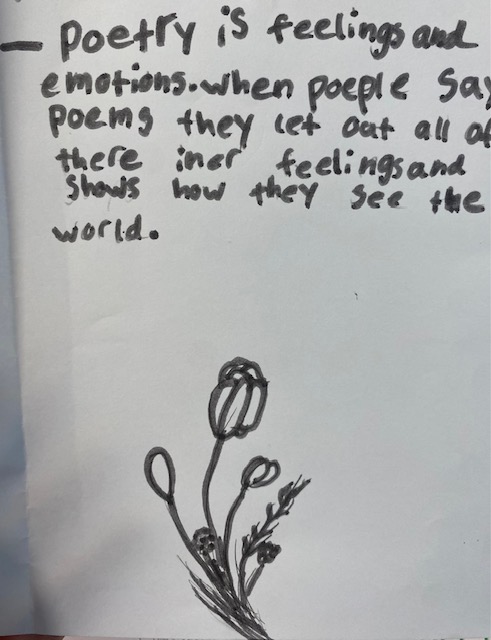 — Poetry is feelings and
emotions. when poeple say
poems they let out all of
there iner feelings and
shows how they see the
world.